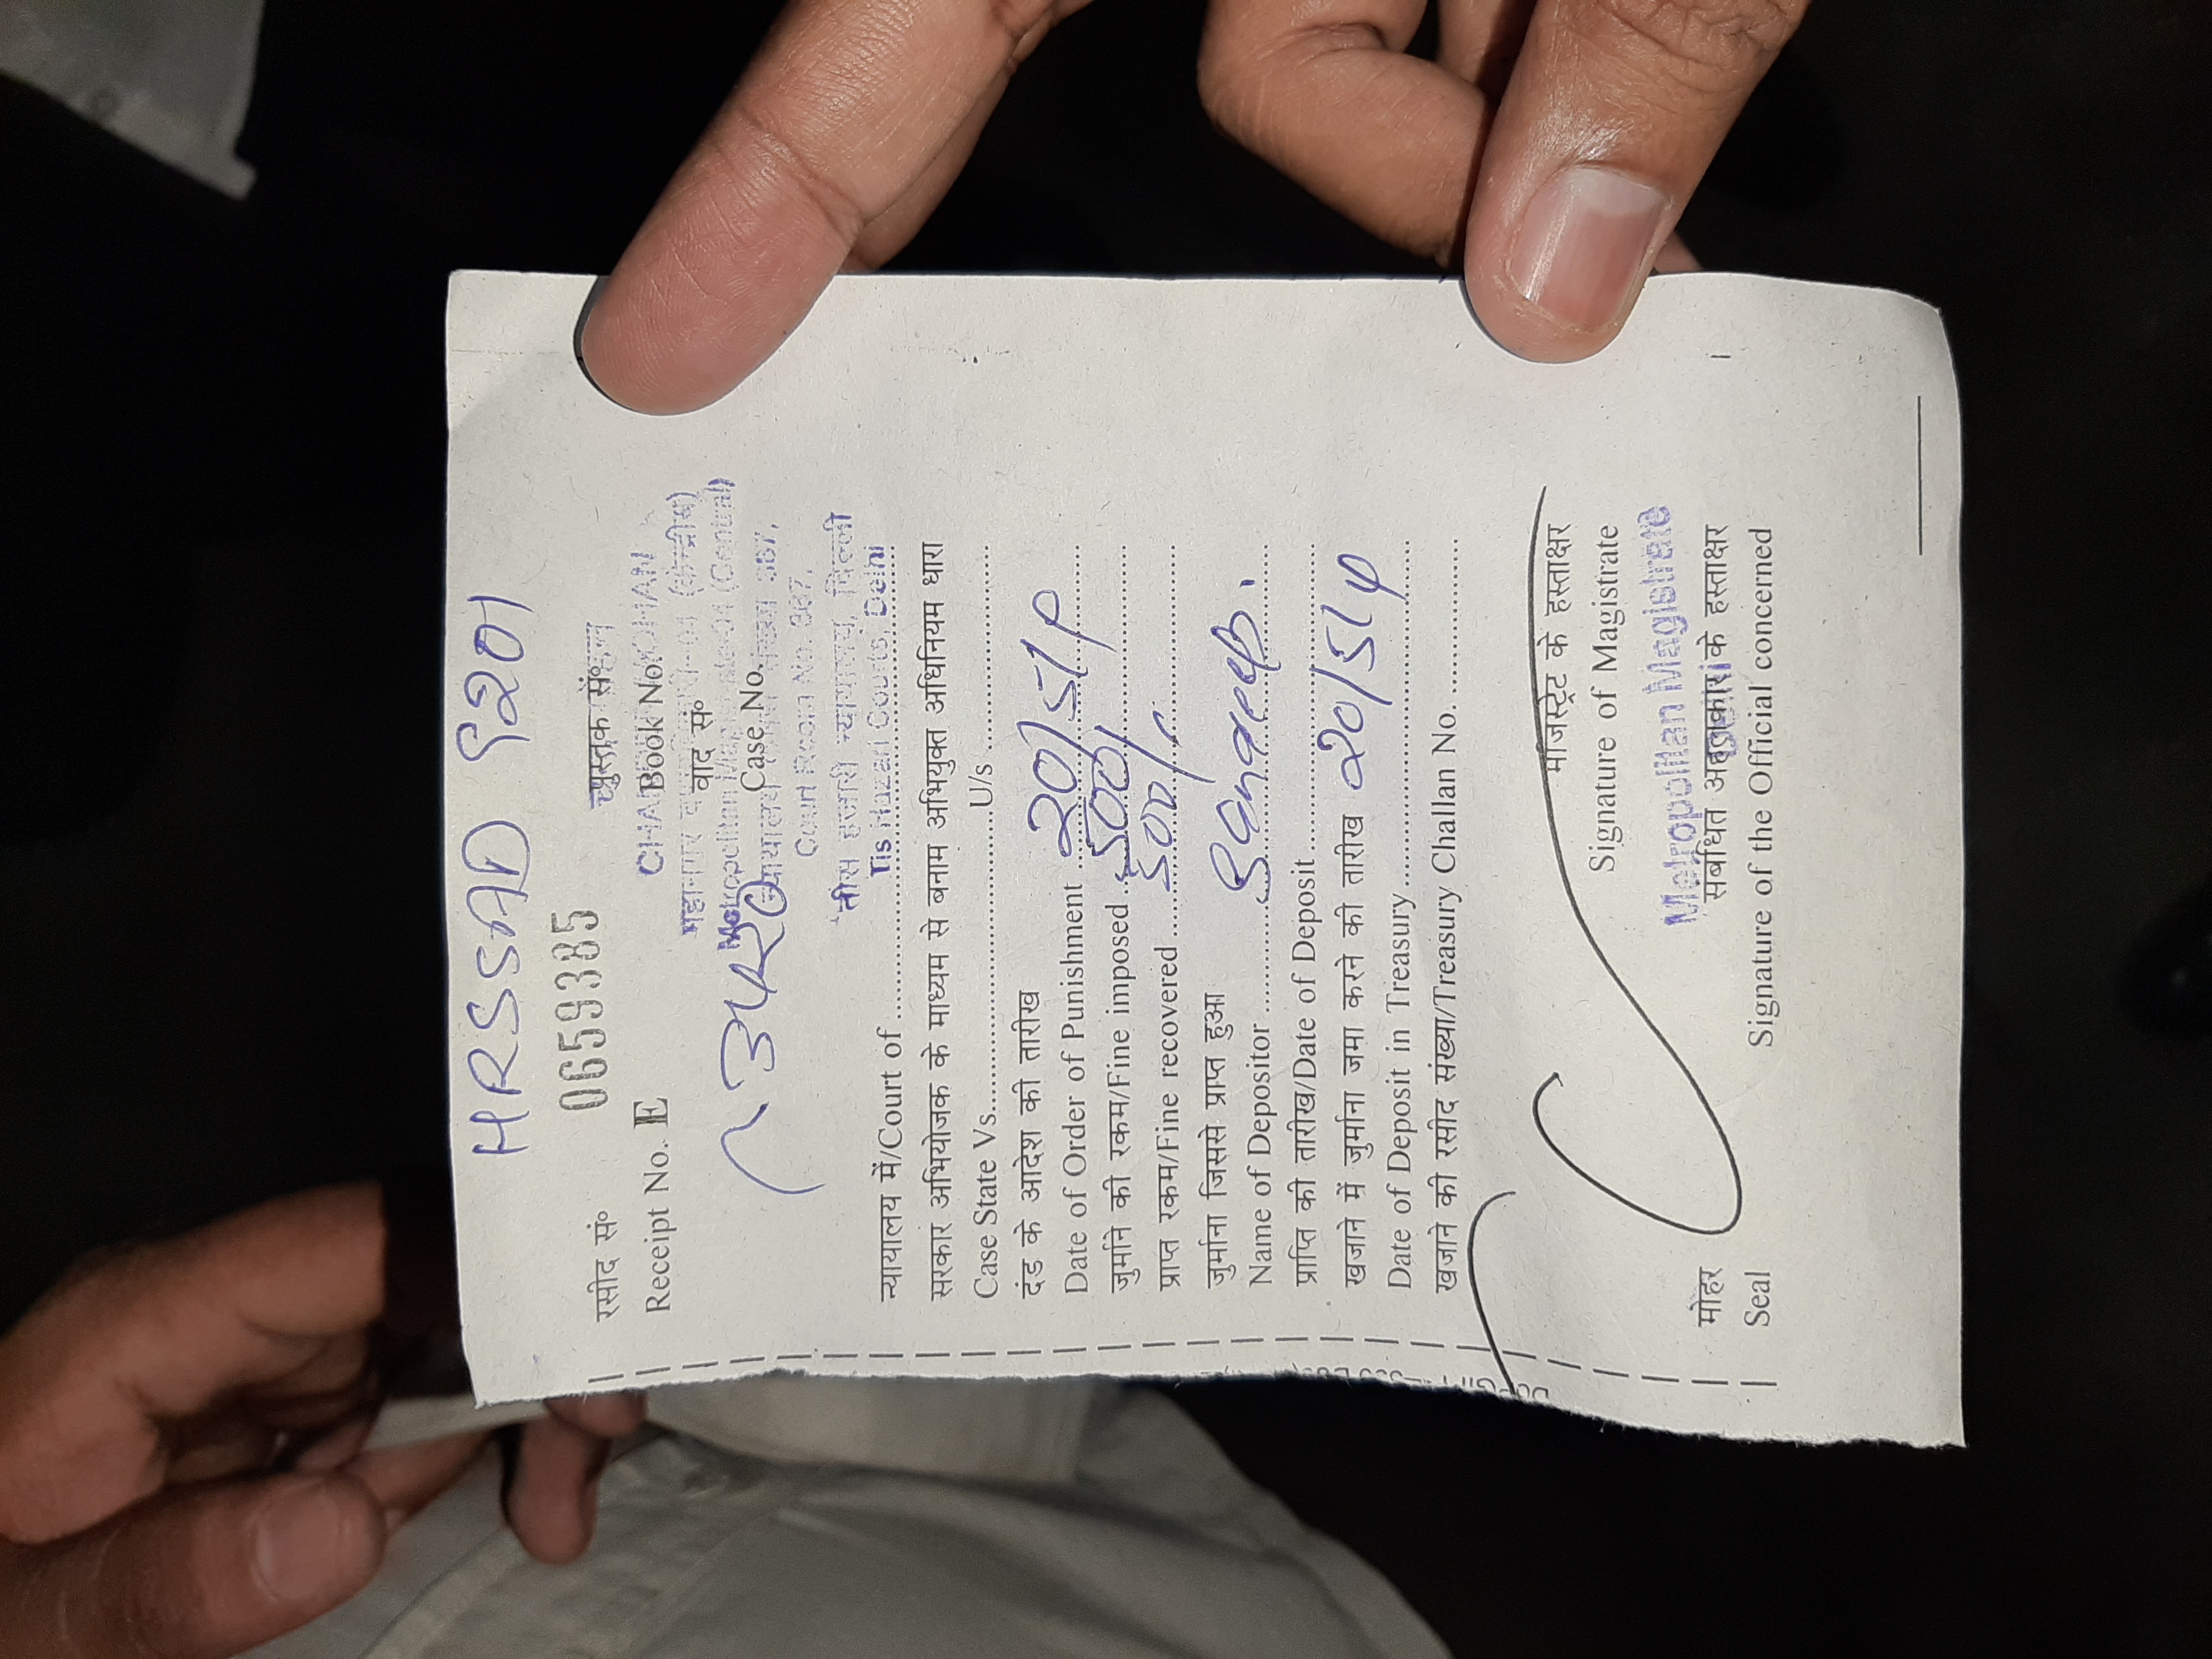 HRSSAD 9201
रसीद सं० 0659385 पुस्तक सं०
Receipt No. E Book No.
CHAN MOHAN
महानगर (केन्द्रीय)
वाद सं०
Metropolitan (Central)
Case No.
न्यायालय 367,
Court Room No. 367,
तीस हजारी न्यायालय, दिल्ली
Tis Hazari Courts, Delhi
न्यायालय में/Court of
सरकार अभियोजक के माध्यम से बनाम अभियुक्त अधिनियम धारा
Case State Vs. U/s
दंड के आदेश की तारीख
Date of Order of Punishment 20/5/
जुर्माने की रकम/Fine imposed 500/
प्राप्त रकम/Fine recovered 500/-
जुर्माना जिससे प्राप्त हुआ
Name of Depositor
प्राप्ति की तारीख/Date of Deposit
खजाने में जुर्माना जमा करने की तारीख 20/5/
Date of Deposit in Treasury
खजाने की रसीद संख्या/Treasury Challan No.
मजिस्ट्रेट के हस्ताक्षर
Signature of Magistrate
Metropolitan Magistrate
मोहर संबंधित के हस्ताक्षर
Seal Signature of the Official concerned